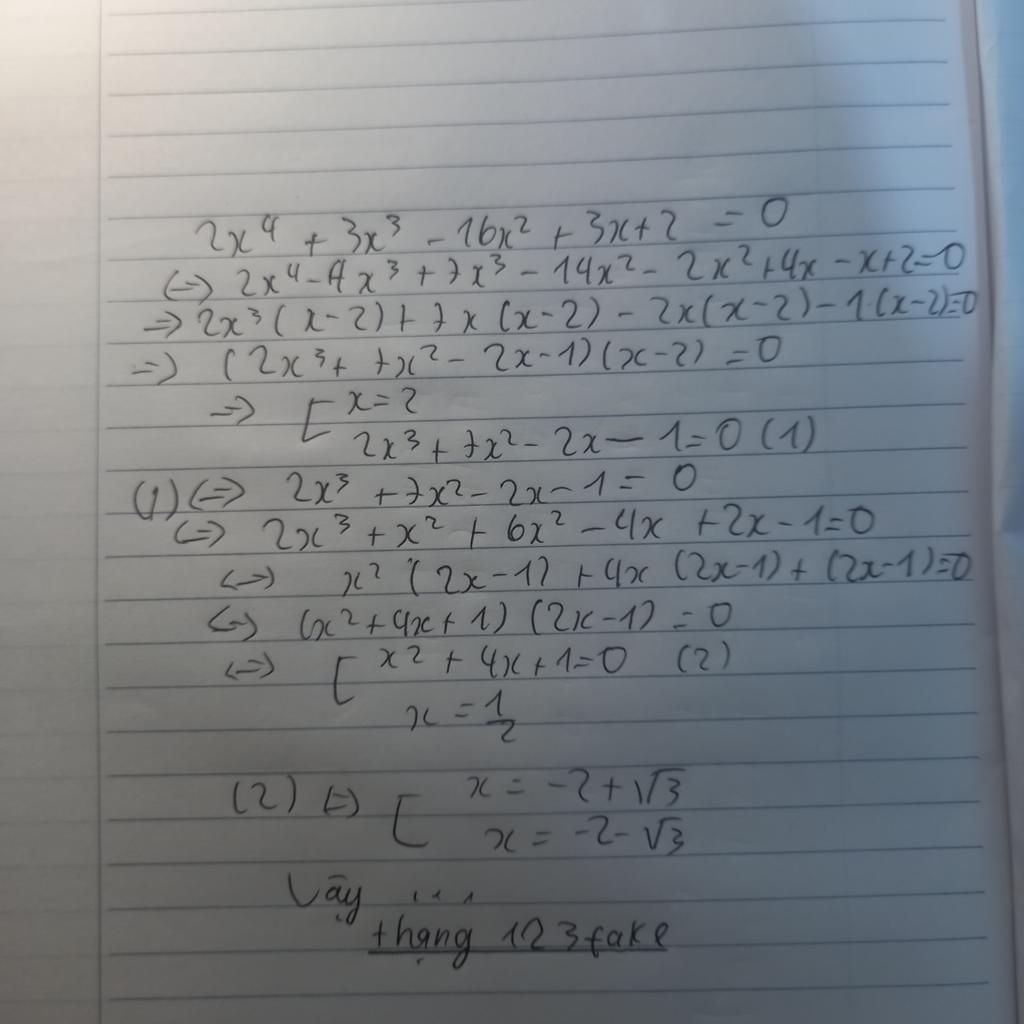 2x⁴ + 3x³ - 16x² + 3x+2 = 0
<=> 2x⁴-4x³ +7x³ - 14x² - 2x²+4x -x+2=0
=> 2x³(x-2)+7x(x-2) - 2x(x-2)-1.(x-2)=0
=> (2x³+ 7x² - 2x-1)(x-2) = 0
=> [ x=2
2x³ + 7x² - 2x - 1=0 (1)
(1) <=> 2x³ +7x²-2x-1= 0
<=> 2x³ +x² + 6x² -4x +2x-1=0
<=> x² (2x-1) +4x (2x-1)+(2x-1)=0
<=> (x²+4x+1) (2x-1) = 0
<=> [ x² + 4x+1=0 (2)
x = 1/2
(2) <=> [ x = -2+√3
x = -2-√3
Vậy ...
thạng 123fake